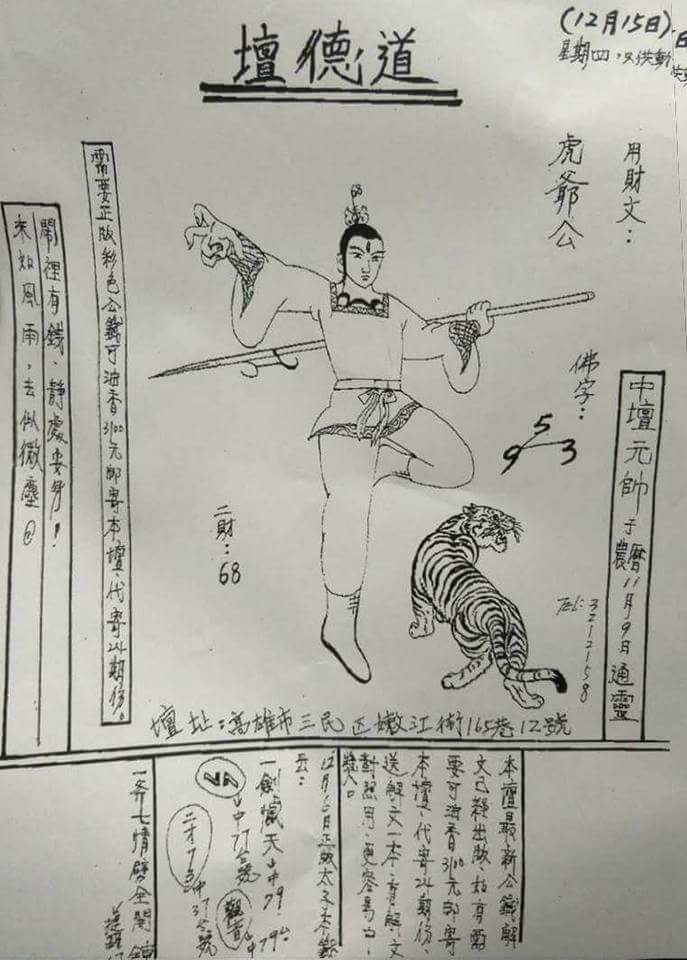 道德壇
(12月15日)
星期四,只供
用財文:
虎爺公
佛字:
5
9 3
中壇元帥于農曆11月9日通靈
TEL: 3212158
二財:
68
需要正版彩色公籤可油香3100元郵寄本壇、代寄24期份。
鬧裡有錢、靜處安身!
未如風雨,去似微塵。
壇址:高雄市三民區嫩江街165巷12號
本壇最新公籤解
文已釋出版、如有需
要可油香3100元郵寄
本壇、代寄24期份、
送解文一本、有解文
對照用、更容易中
獎。
12月6日正版太子本籤
云:
一劍憾天中79!
觀音 中79
中77
二才7
中37
一斧七情劈全開